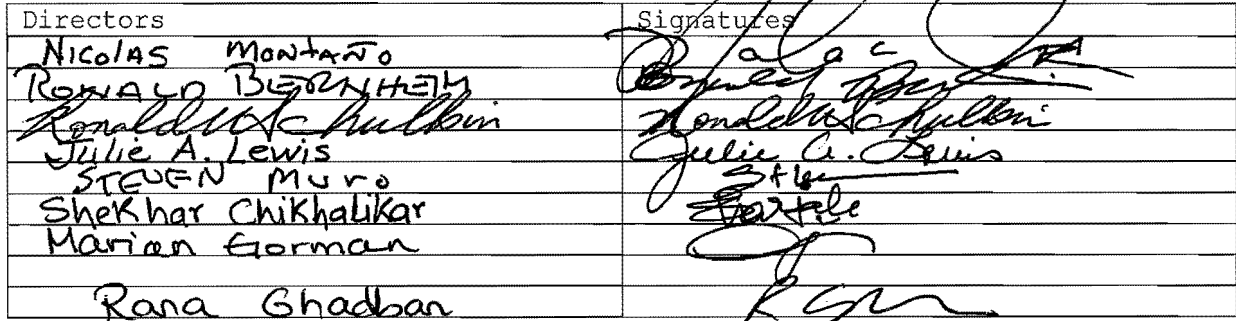 Directors Signatures
Nicolas Montaño
RONALD BERNHEIM
Ronald W Schulkin Ronald W Schulkin
Julie A. Lewis Julie A. Lewis
STEVEN Muro
Shekhar Chikhalikar
Marian Gorman
Rana Ghadban